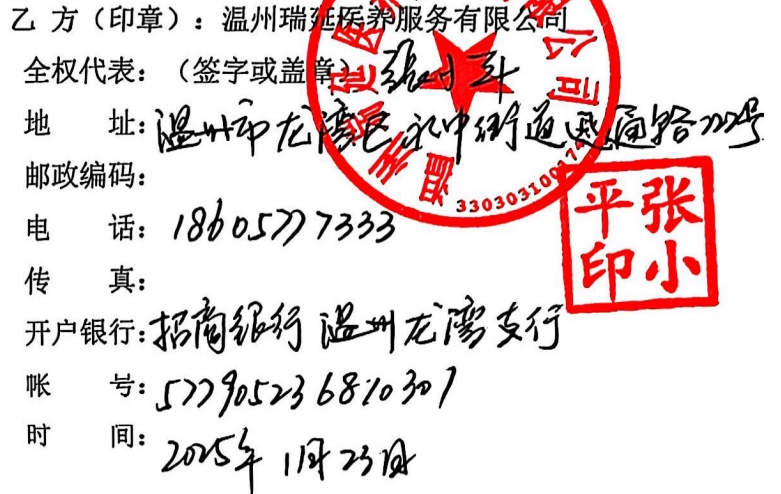 乙 方（印章）：温州瑞延医养服务有限公司
全权代表：（签字或盖章）张小平
地 址：温州市龙湾区永中街道通路222号
邮政编码：
电 话：18605777333
传 真：
开户银行：招商银行温州龙湾支行
帐 号：577905236810301
时 间：2025年1月23日
330303100174
张小平印